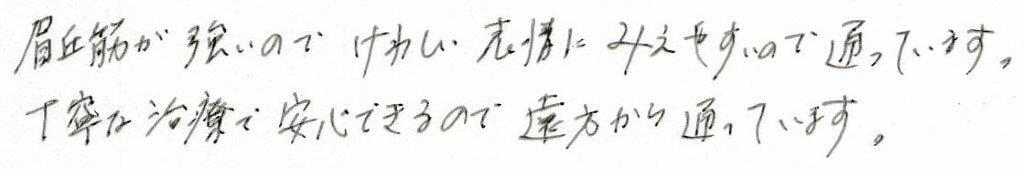 眉丘筋が強いので けわしい 表情に みえやすいので 通っています。
丁寧な治療で安心できるので 遠方から 通っています。